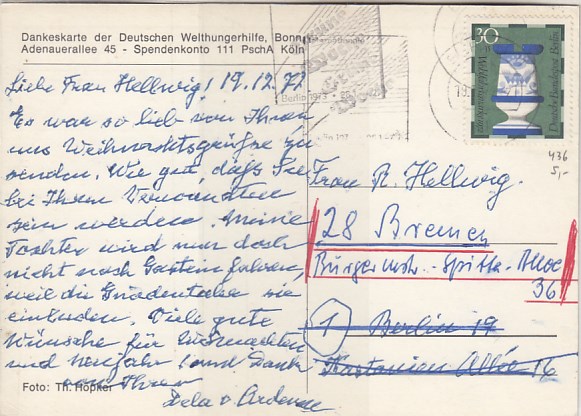 Dankeskarte der Deutschen Welthungerhilfe, Bonn,
Adenauerallee 45 - Spendenkonto 111 PschA Köln
Liebe Frau Hellwig! 19.12.72
Es war so lieb von Ihnen
uns Weihnachtsgrüße zu
senden. Wie gut, daß Sie
bei Ihren Verwandten
sein werden. Meine
Tochter wird nun doch
nicht nach Gastein fahren,
weil die sie
einluden. Viele gute
Wünsche für Weihnachten
und Neujahr! und Dank
von Ihrer
Dela v.
Foto: Th. Höpker
Berlin 1973
30
Wohlfahrtsmarke
Deutsche Bundespost Berlin
436
5,-
Frau R. Hellwig.
28 Bremen
Bürgermstr.-Spitta-Allee
36
1 Berlin 19
Kastanien Allee 16